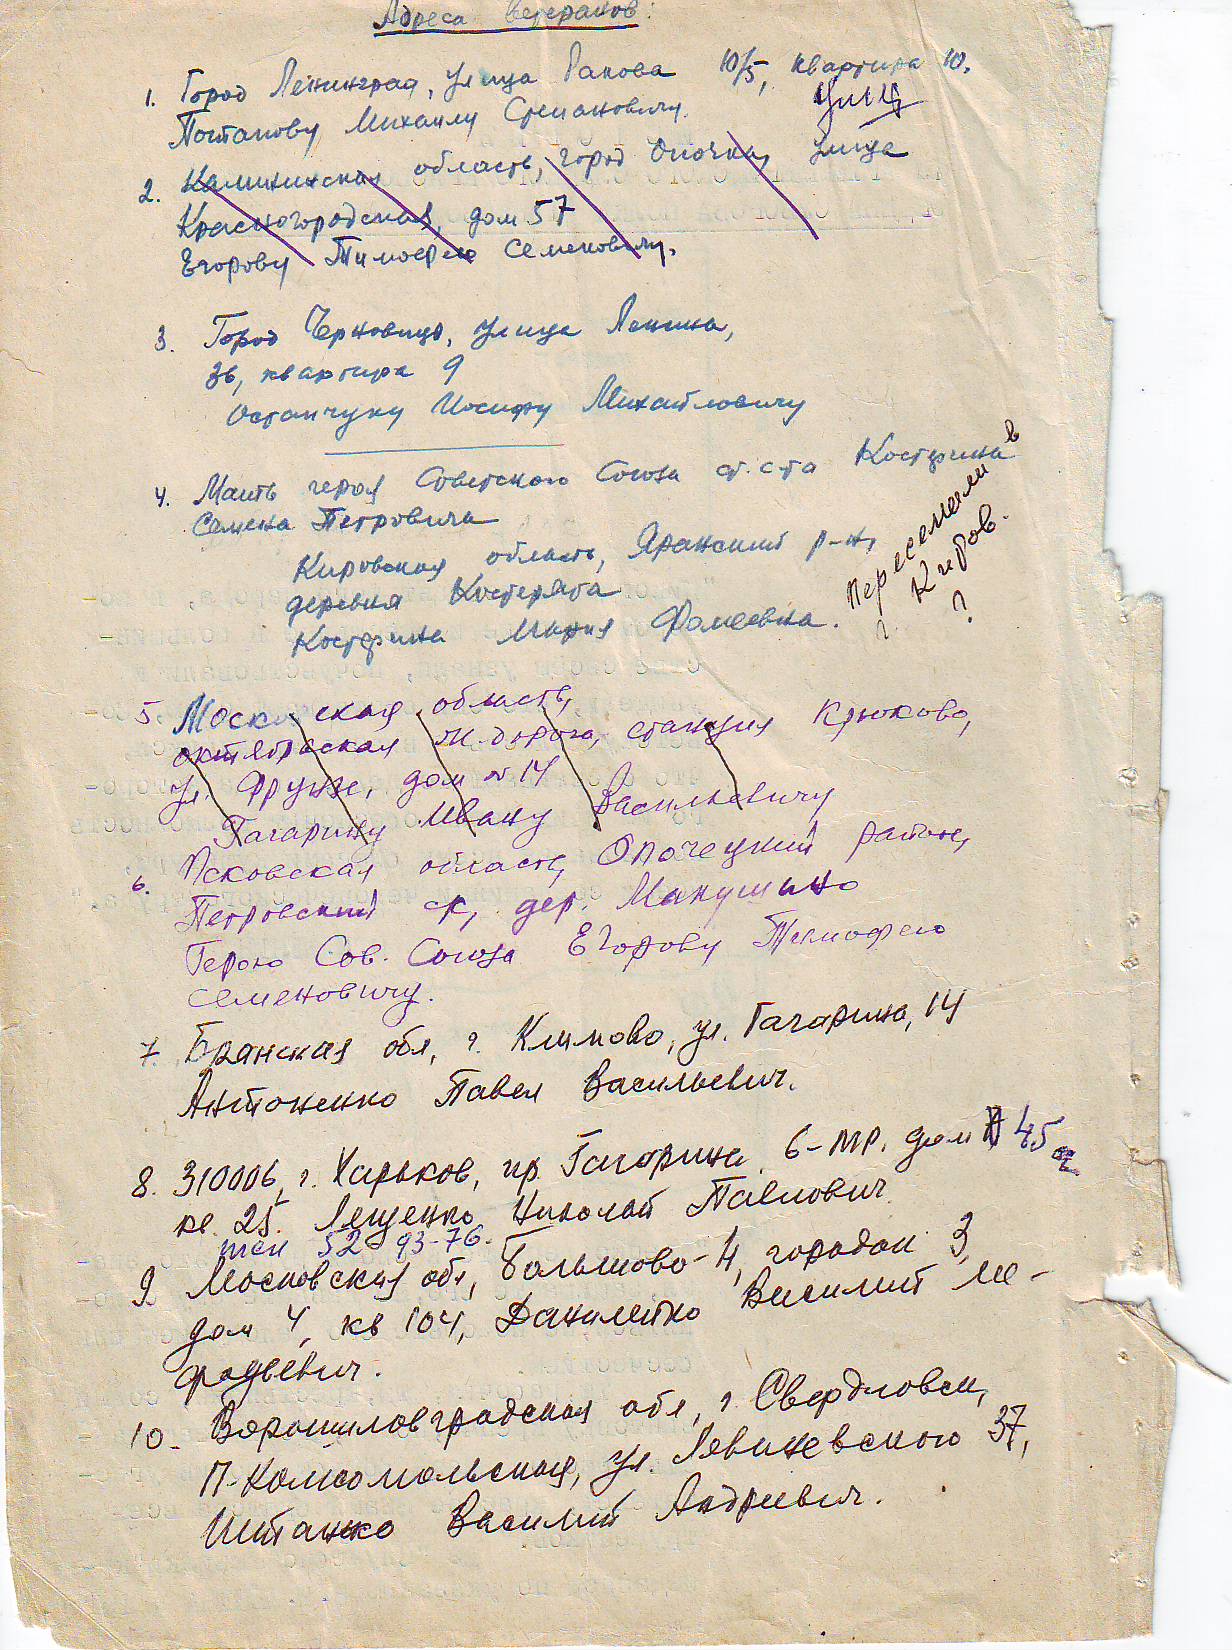 Адреса ветеранов:
1. Город Ленинград, улица Ракова 10/5, квартира 10.
Потапову Михаилу Степановичу.
2. Калининская область, город Опочка, улица
Красногородская, дом 57
Егорову Тимофею Семеновичу.
3. Город Черновцы, улица Ленина,
36, квартира 9
Остапчуку Иосифу Михайловичу
4. Мать героя Советского Союза ст. с-та Кострина
Семена Петровича
Кировская область, Яранский р-н,
деревня
Кострина Мария Фомеевна.
Переселили в
г. Киров.
?
5. Московская область,
октябрьская ж. дорога, станция Крюково,
ул. Фрунзе, дом № 14
Гагарину Ивану Васильевичу
6. Псковская область, Опочецкий район,
Петровский с/с, дер. Макушино
Герою Сов. Союза Егорову Тимофею
Семеновичу.
7. Брянская обл, г. Климово, ул. Гагарина, 14
Антоненко Павел Васильевич.
8. 310006, г. Харьков, пр. Гагарина дом 45
кв. 25. Лещенко Николай Павлович.
тел 52-93-76.
9 Московская обл, Болшово-4, городок 3,
дом 4, кв 104, Данилейко Василий Ме-
фодьевич.
10. Ворошиловградская обл, г. Свердловск,
п. Комсомольская, ул. 37,
Василий Андреевич.